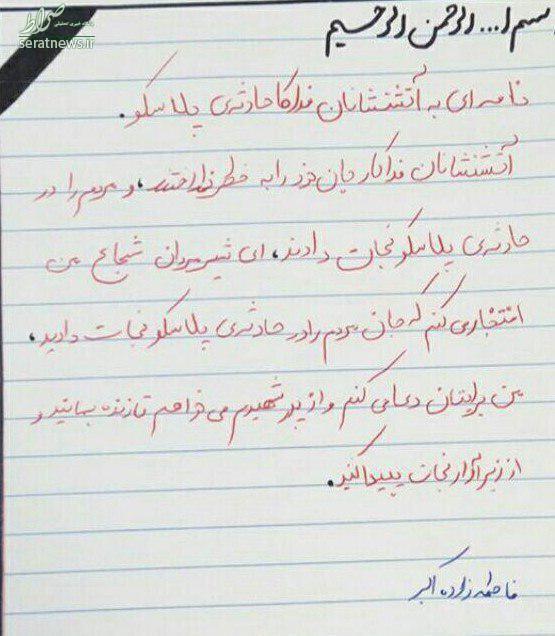 صراط
seratnews.ir
بسم ا... الرحمن الرحیم
نامه ای به آتشنشانان فداکار حادثه‌ی پلاسکو.
آتشنشانان فداکار جان خود را به خطر انداختند، و مردم را در
حادثه‌ی پلاسکو نجات دادند، ای شیرمردان شجاع من
افتخار می کنم که جان مردم را در حادثه‌ی پلاسکو نجات دادید،
من برایتان دعا می کنم و از پدر شهیدم می خواهم تا زنده بمانید و
از زیر آوار نجات پیدا کنید.
فاطمه زاده اکبر